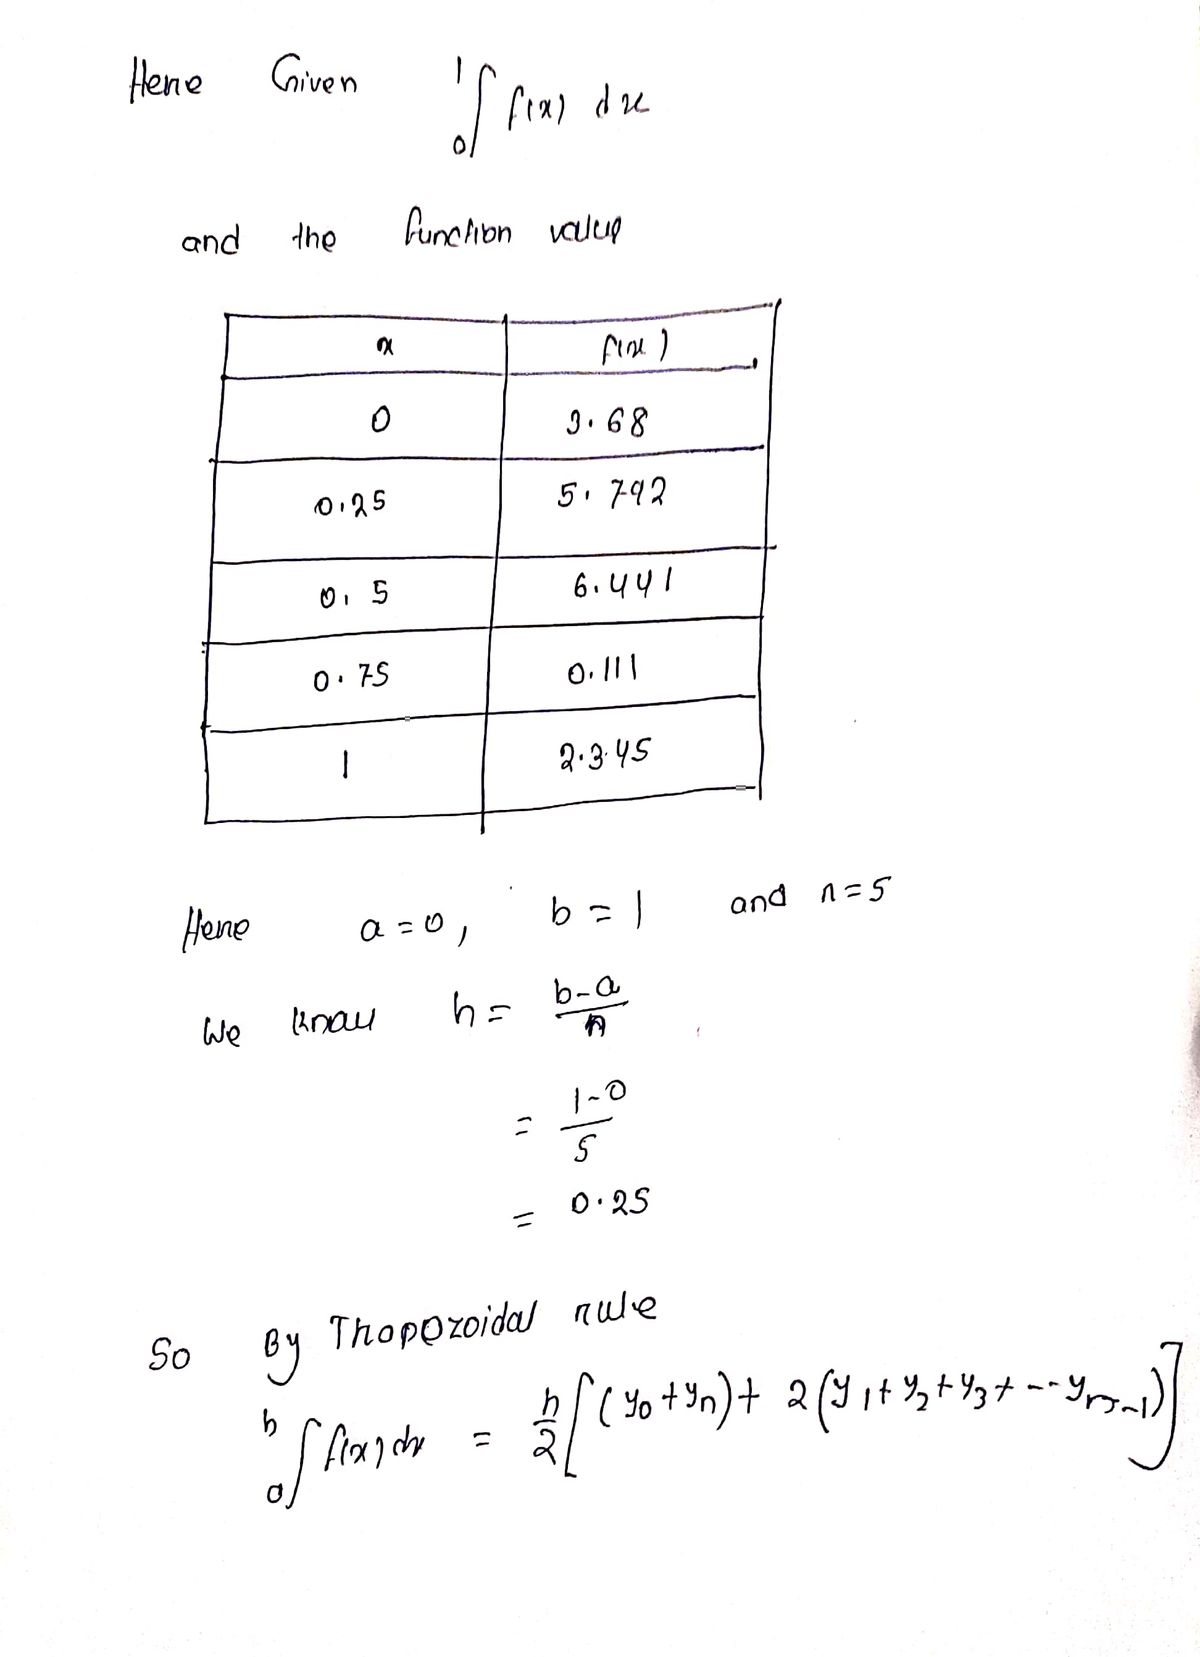 Here Given ∫₀¹ f(x) dx
and the function value
x f(x)
0 3.68
0.25 5.792
0.5 6.441
0.75 0.111
1 2.345
Here a = 0, b = 1 and n = 5
We know h = (b-a)/n
= (1-0)/5
= 0.25
So By Trapezoidal rule
∫ₐᵇ f(x) dx = h/2 [(y₀ + yₙ) + 2(y₁ + y₂ + y₃ + --- yₙ₋₁)]